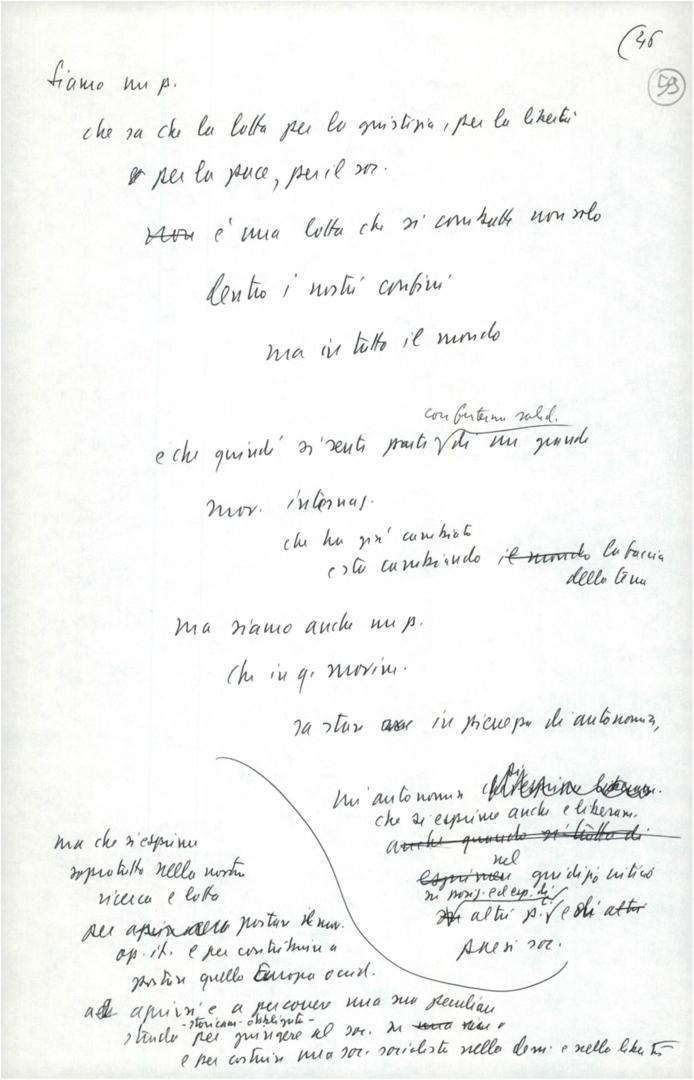 (46
59
Siamo un p.
che sa che la lotta per la giustizia, per la libertà
per la pace, per il soc.
Non è una lotta che si combatte non solo
dentro i nostri confini
ma in tutto il mondo
con fraterna solid.
e che quindi si sente parte di un grande
mov. internaz.
che ha già cambiato
e sta cambiando il mondo la faccia
della terra
ma siamo anche un p.
che in q. movim.
sa stare in pienezza di autonomia,
un'autonomia
che si esprime anche e liberam.
anche quando si tratta di
nel
esprimere giudizi critici
su posiz. ed esp. di
altri p. e di altri
paesi soc.
ma che si esprime
soprattutto nella nostra
ricerca e lotta
per portare il mov.
op. it. e per contribuire a
portare quello Europa occid.
ad aprirsi e a percorrere una sua peculiare
- storicam. obbligata -
strada per giungere al soc.
e per costruire una soc. socialista nella dem. e nella libertà